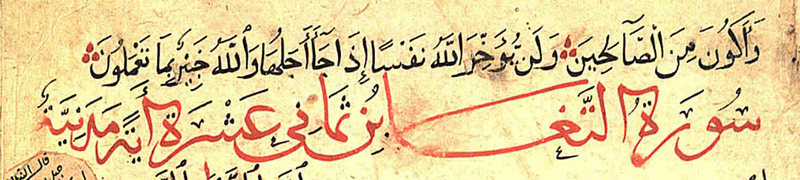 وَأَكُونَ مِنَ الصَّالِحِينَ وَلَن يُؤَخِّرَ اللَّهُ نَفْسًا إِذَا جَاءَ أَجَلُهَا وَاللَّهُ خَبِيرٌ بِمَا تَعْمَلُونَ
سُورَةُ التَّغَابُنِ ثَمَانِي عَشْرَةَ أَيَةً مَدَنِيَّةٌ